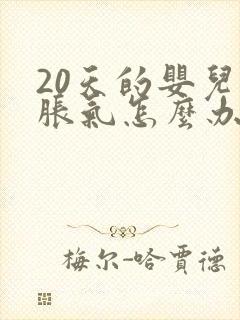 20天的嬰兒
脹氣怎麼办
梅尔-哈賈德